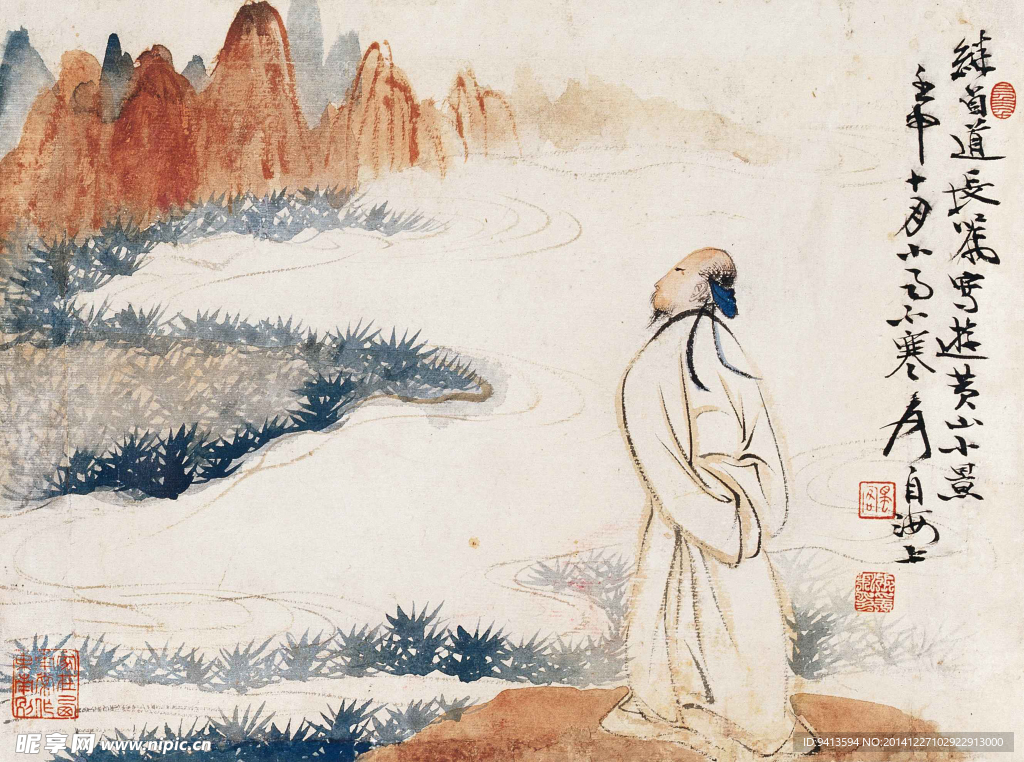 練百道長囑寫遊黄山小景
壬申十月小雨不寒
爰自海上
昵享网 www.nipic.cn
ID:9413594 NO:20141227102922913000